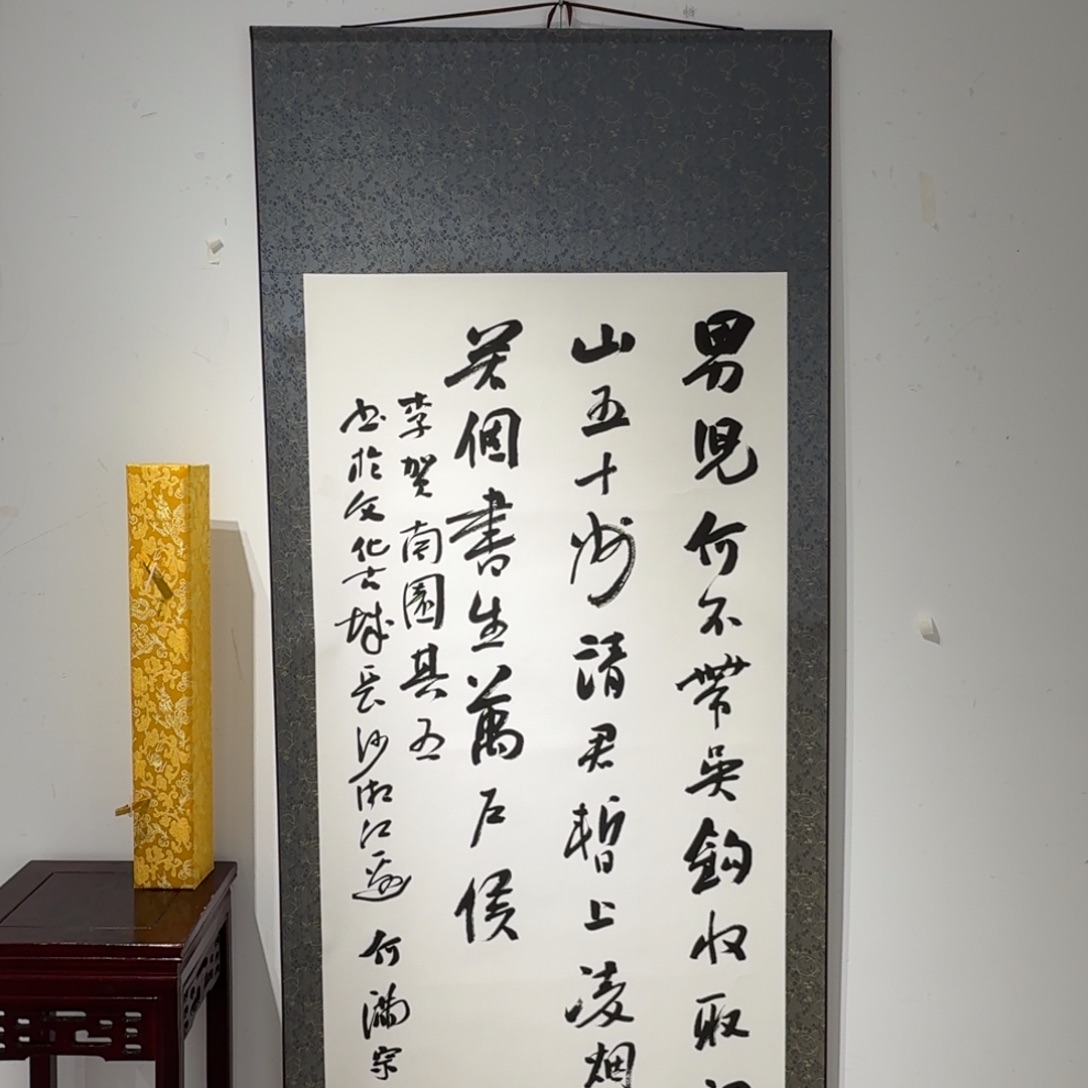 男兒何不帶吳鈎收取
山五十州請君暫上凌烟
若個書生萬户侯
李贺南園其五
书於文化古城长沙湘江邊 何满宗